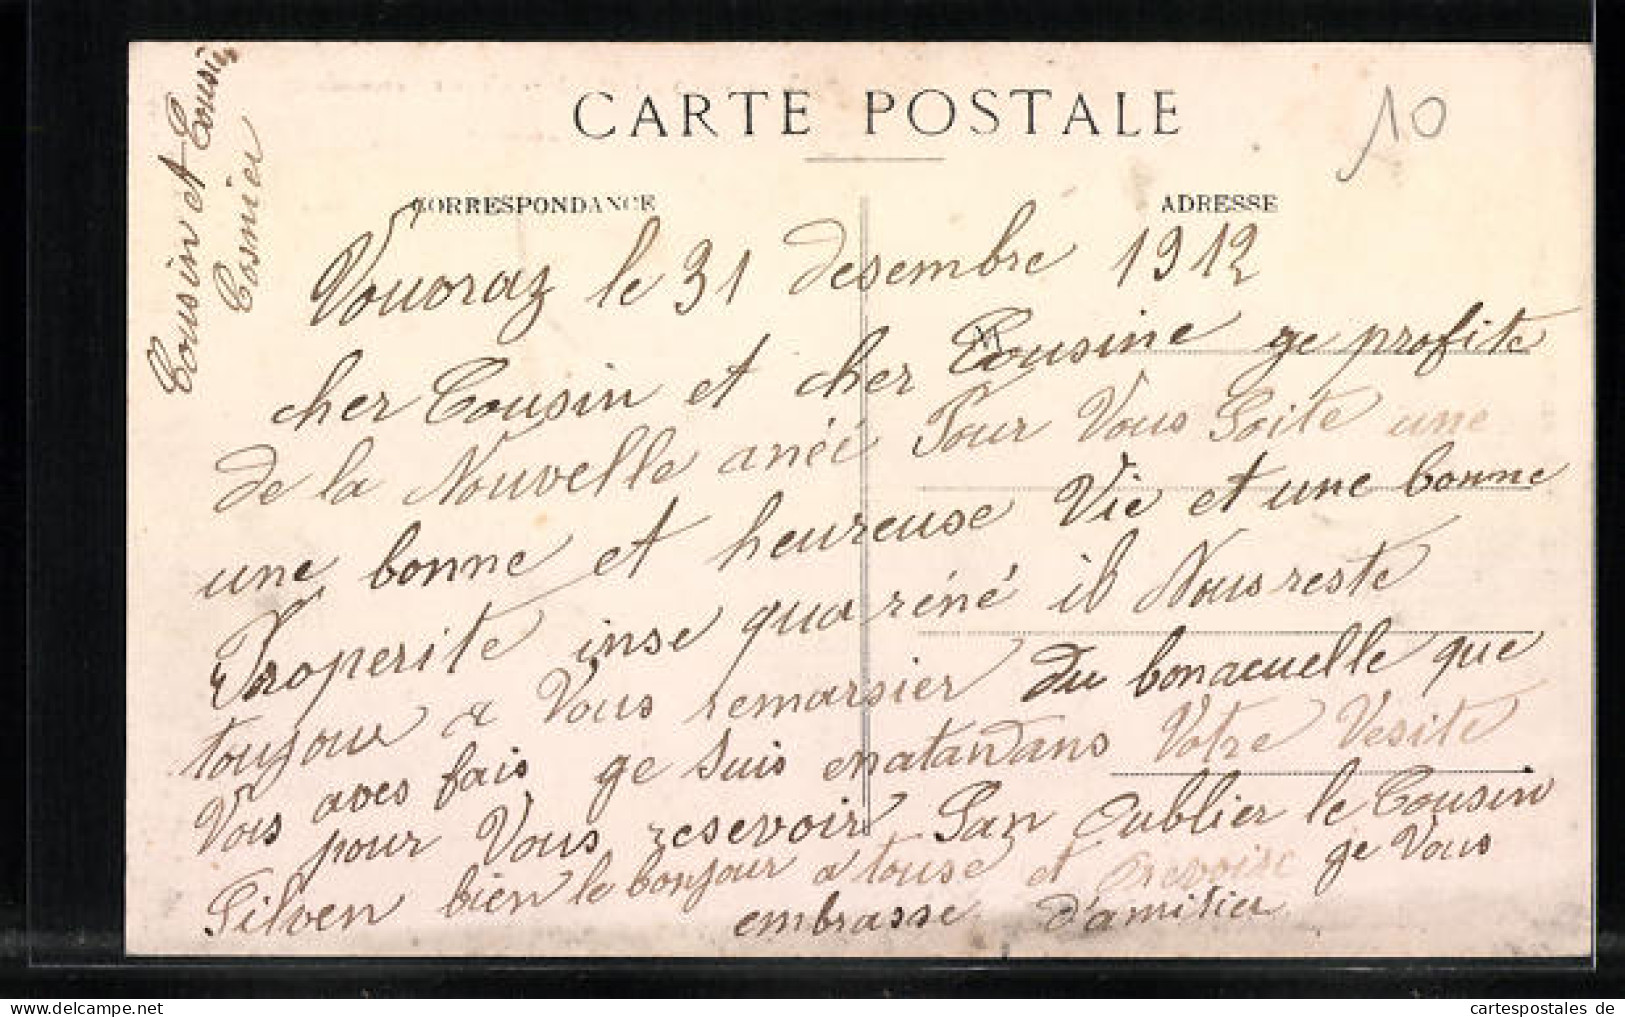 CARTE POSTALE
10
CORRESPONDANCE
ADRESSE
Vouoraz le 31 desembre 1912
cher Cousin et cher Cousine ge profite
de la Nouvelle aneé Pour Vous Soite une
une bonne et heureuse Vie et une bonne
Properite inse qua réné il Nous reste
toujour a Vous remarsier du bonacuelle que
Vous aves fais ge suis enatandans Votre Vesite
pour Vous resevoir San Oublier le Cousin
Silven bien le bonjour a touse et Orevoire ge Vous
embrasse d'amitier
Cousin et Cousine
Cosnier
cartespostales de